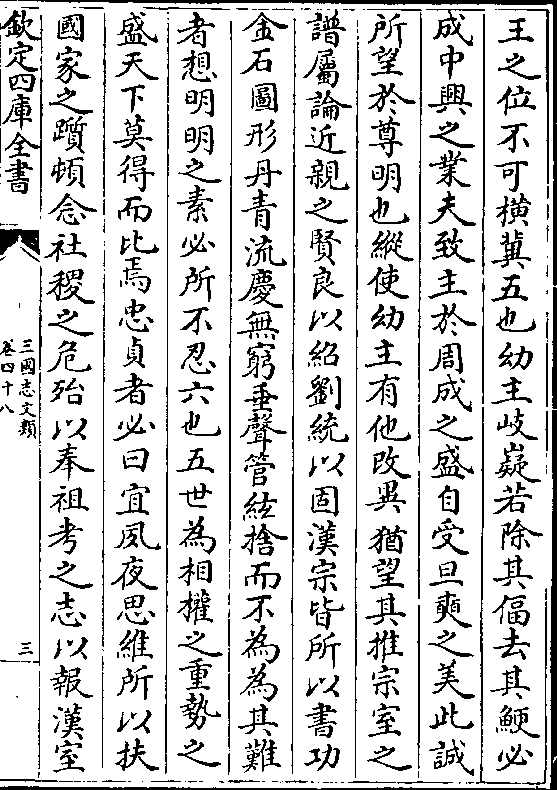 王之位不可橫冀五也幼主岐嶷若除其偪去其鯁必
成中興之業夫致主於周成之盛自受旦奭之美此誠
所望於尊明也縱使幼主有他改異猶望其推宗室之
譜屬論近親之賢良以紹劉統以固漢宗皆所以書功
金石圖形丹青流慶無窮垂聲管絃捨而不為為其難
者想明明之素必所不忍六也五世為相權之重勢之
盛天下莫得而比焉忠貞者必曰宜夙夜思維所以扶
國家之躓頓念社稷之危殆以奉祖考之志以報漢室
欽定四庫全書
三國志文類
卷四十八
三